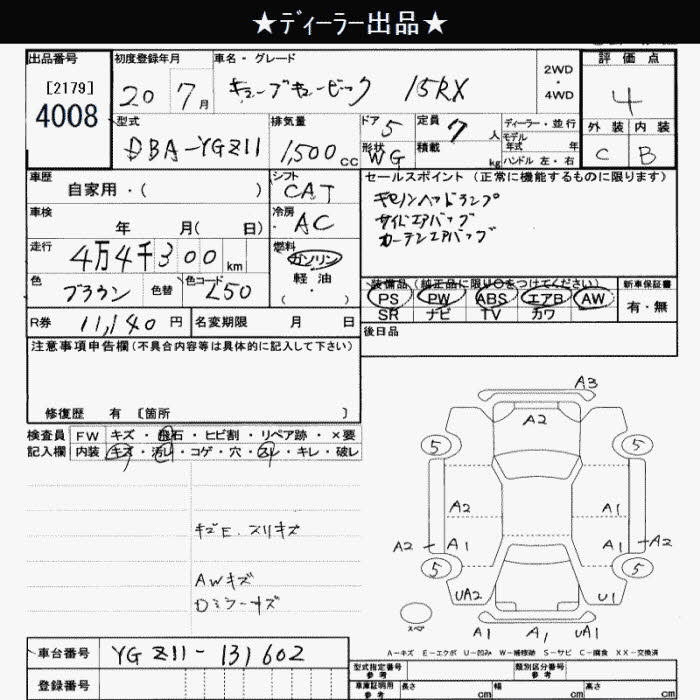 ★ディーラー出品★
出品番号
[2179]
4008
初度登録年月
20 7月
車名・グレード
キューブキュービック 15RX
2WD
・
4WD
評価点
4
外装 内装
C B
型式
DBA-YGZ11
排気量
1,500cc
ドア 5
形状 WG
定員 7人
積載 kg
ディーラー・並行
モデル年式 年
ハンドル 左・右
車歴
自家用・( )
シフト
CAT
セールスポイント(正常に機能するものに限ります)
キセノンヘッドランプ
サイドエアバッグ
カーテンエアバッグ
車検
年 月( 日)
冷房
AC
走行
4万4千300km
燃料
ガソリン
軽油
( ・ )
色
ブラウン
色替
色コード
L50
装備品(純正品に限り○をつけてください)
PS PW ABS エアB AW
SR ナビ TV カワ
新車保証書
有・無
R券 11,140円
名変期限 月 日
後日品
注意事項申告欄(不具合内容等は具体的に記入して下さい)
修復歴 有 [箇所 ]
検査員 FW キズ・飛石・ヒビ割・リペア跡・×要
記入欄 内装 キズ・汚レ・コゲ・穴・スレ・キレ・破レ
キズE.スリキズ
AWキズ
Dミラーキズ
A3
A2
5 5
A2 A1
A2 A1 A1 A2
5 5
UA2 U1
スペア
A1 A1 UA1
A-キズ E-エクボ U-凹み W-補修跡 S-サビ C-腐食 XX-交換済
車台番号 YGZ11-131602
登録番号
型式指定番号
参考
類別区分番号
参考
車庫証明用
参考
長さ cm 幅 cm 高さ cm